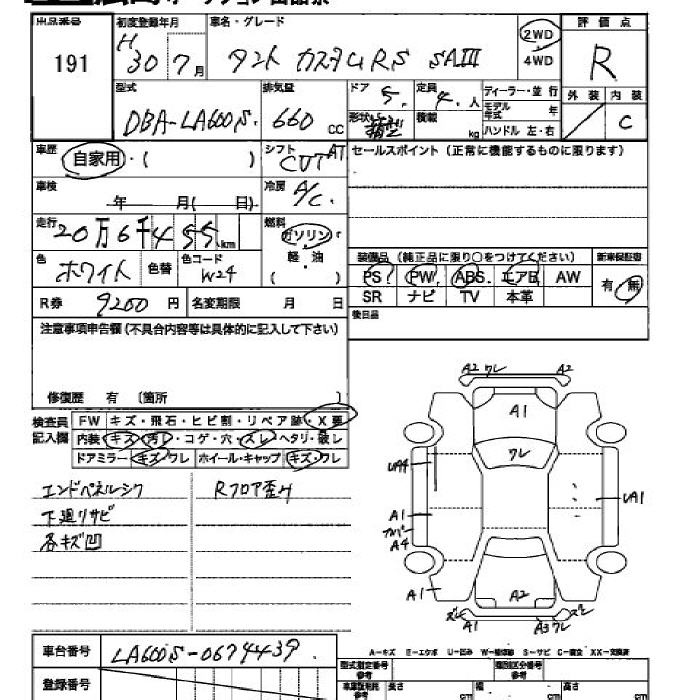 出品番号 191
初度登録年月 H 30 7月
車名・グレード タント カスタムRS SAIII
2WD 4WD
評価点 R
外装 内装 C
型式 DBA-LA600S
排気量 660 CC
ドア 5
定員 4人
ディーラー・並行
モデル年式 年
形状
積載 kg
ハンドル 左・右
車歴 自家用・( )
シフト CVT AT
セールスポイント(正常に機能するものに限ります)
車検 年 月( 日)
冷房 A/C
走行 20万6千455km
燃料 ガソリン・軽・油 ( )
色 ホワイト 色替
色コード W24
装備品(純正品に限り○をつけてください) 新車保証書
PS PW ABS エアB AW 有・無
SR ナビ TV 本革
R券 9200円 名変期限 月 日
後日品
注意事項申告欄(不具合内容等は具体的に記入して下さい)
修復歴 有 〔箇所 〕
検査員記入欄
FW キズ・飛石・ヒビ割・リペア跡・X要
内装 キズ・汚レ・コゲ・穴・スレ・ヘタリ・破レ
ドアミラー キズ/ワレ ホイール・キャップ キズ・ワレ
エンドパネルシワ Rフロア歪ミ
下廻リサビ
各キズ凹
A2 ワレ A2
A1
ワレ
UA4
UA1
A1
A4
A1
A2
A1
A3 ワレ
A-キズ E-エクボ U-凹み W-補修跡 S-サビ C-腐食 XX-交換済
車台番号 LA600S-0679439
登録番号
型式指定番号 類別区分番号
長さ cm 幅 cm 高さ cm